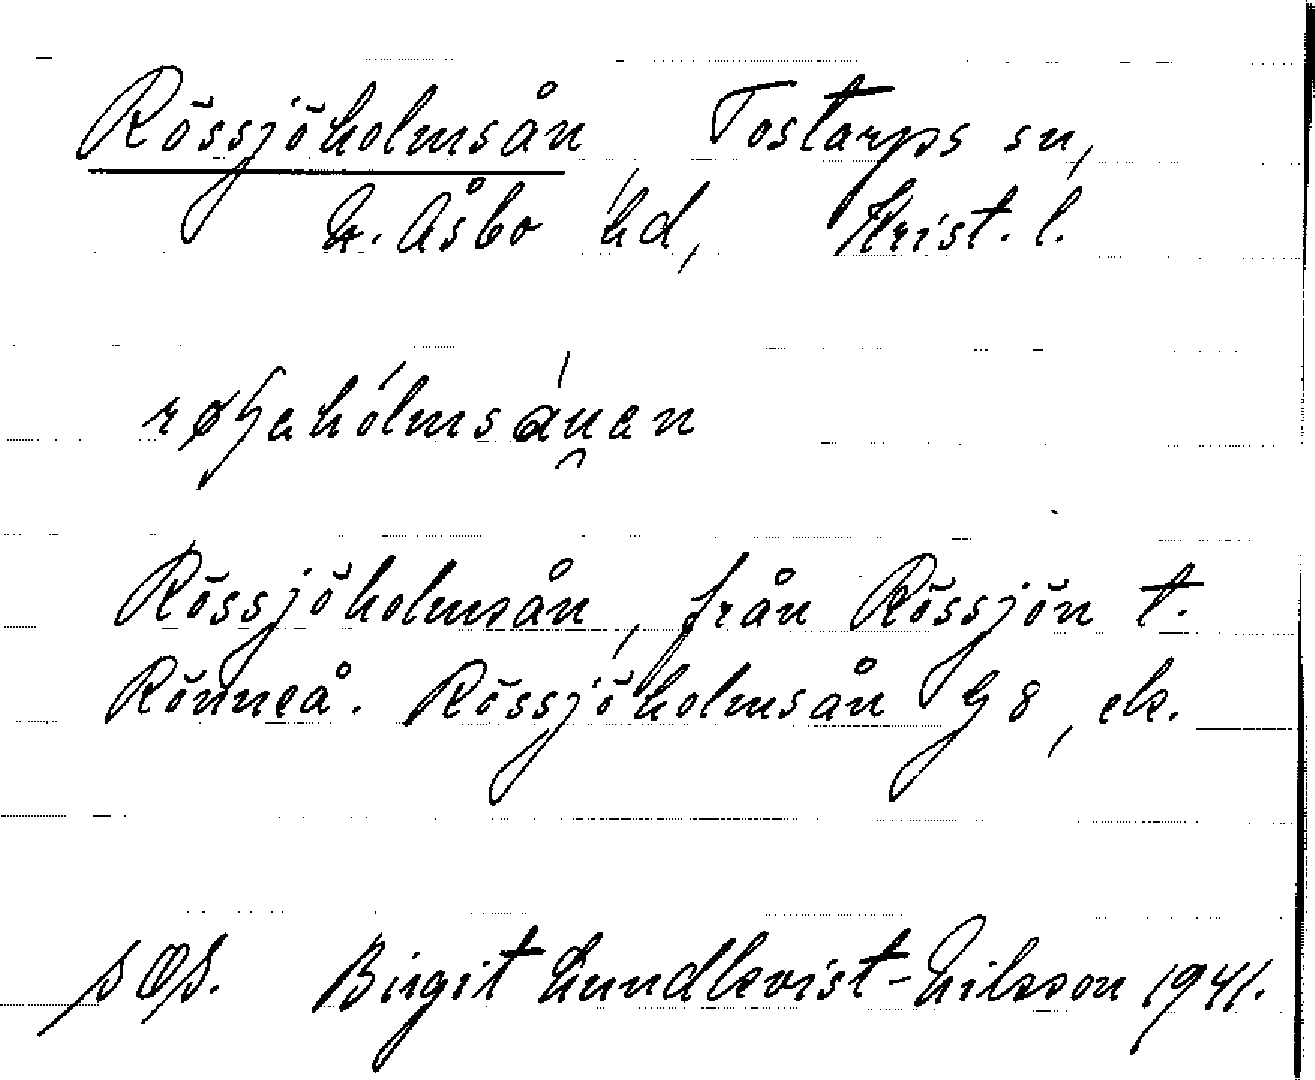 Rössjöholmsån Tostarps sn,
N. Åsbo hd, Krist. l.
Rössjöholmsån, från Rössjön t.
Rönneå. Rössjöholmsån G 8, ek.
Birgit Lundkvist-Nilsson 1941.